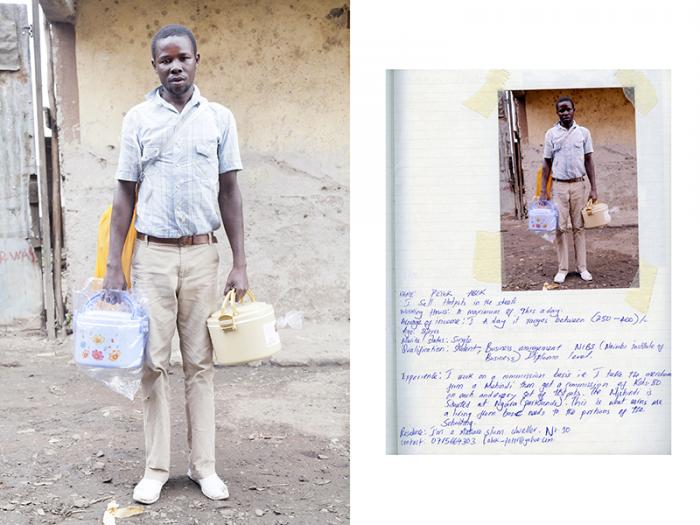 NAME: PETER
I sell Hotpots in the streets
Working Hours: A maximum of 7hrs a day.
Average of income: I a day it ranges between (250-400)/=
Age:
Marital Status: Single
Qualification: Student- Business management NIBS (Nairobi Institute of
Business) Diploma level.
Experience: I work on a commission basis i.e I take the merchandise
from a Muhindi then get a commission of Ksh 80
on each and every set of Hotpots. The Muhindi is
situated at Ngara (parklands). This is what earns me
a living from basic needs to the portions of the
Residence: I'm a Mathare slum dweller. No 10
contact: 0715664303